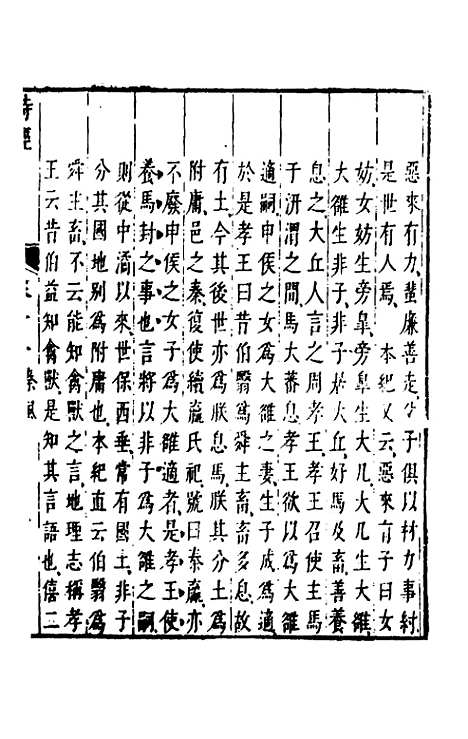 惡來有力蜚廉善走父子俱以材力事紂
是世有人焉本紀又云惡來有子曰女
妨女妨生旁皐旁皐生大几大几生大雒
大雒生非子非子居犬丘好馬及畜善養
息之犬丘人言之周孝王孝王召使主馬
于汧渭之間馬大蕃息孝王欲以爲大雒
適嗣申侯之女爲大雒之妻生子成爲適
於是孝王曰昔伯翳爲舜主畜畜多息故
有土今其後世亦爲朕息馬朕其分土爲
附庸邑之秦復使續嬴氏祀號曰秦嬴亦
不廢申侯之女子爲大雒適者是孝王使
養馬封之事也言將以非子爲大雒之嗣
則從中潏以來世保西垂常有國土非子
分其國地别爲附庸也本紀直云伯翳爲
舜主畜不云能知禽獸之言地理志稱孝
王云昔伯益知禽獸是知其言語也僖二
詩經
秦風